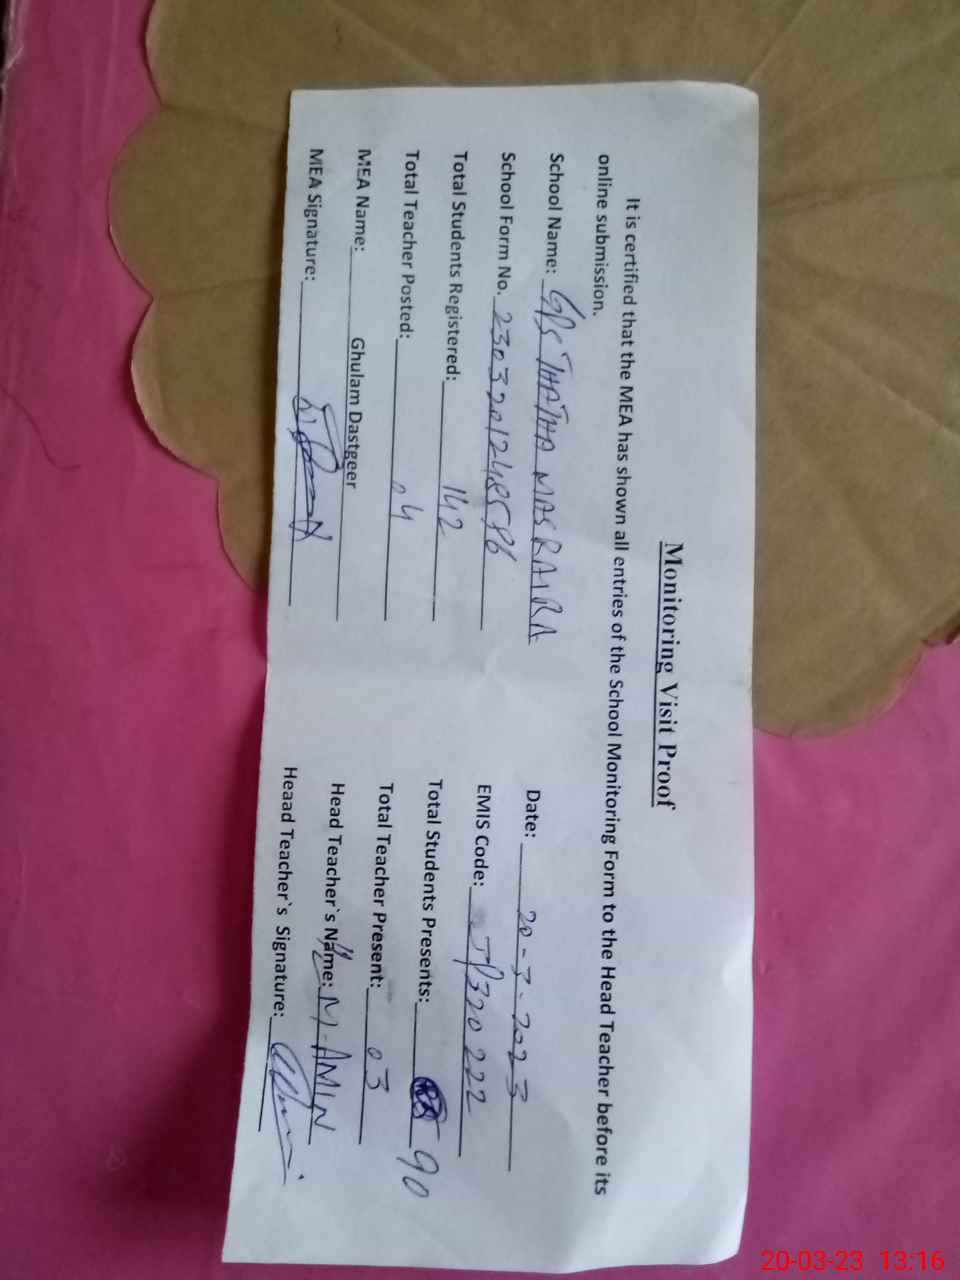 Monitoring Visit Proof
It is certified that the MEA has shown all entries of the School Monitoring Form to the Head Teacher before its
online submission.
School Name: GPS THATHA MASRAIRA Date: 20-3-2023
School Form No. EMIS Code:
Total Students Registered: 142 Total Students Presents: 90
Total Teacher Posted: 04 Total Teacher Present: 03
MEA Name: Ghulam Dastgeer Head Teacher`s Name: M-AMIN
MEA Signature: Heaad Teacher`s Signature:
20-03-23 13:16